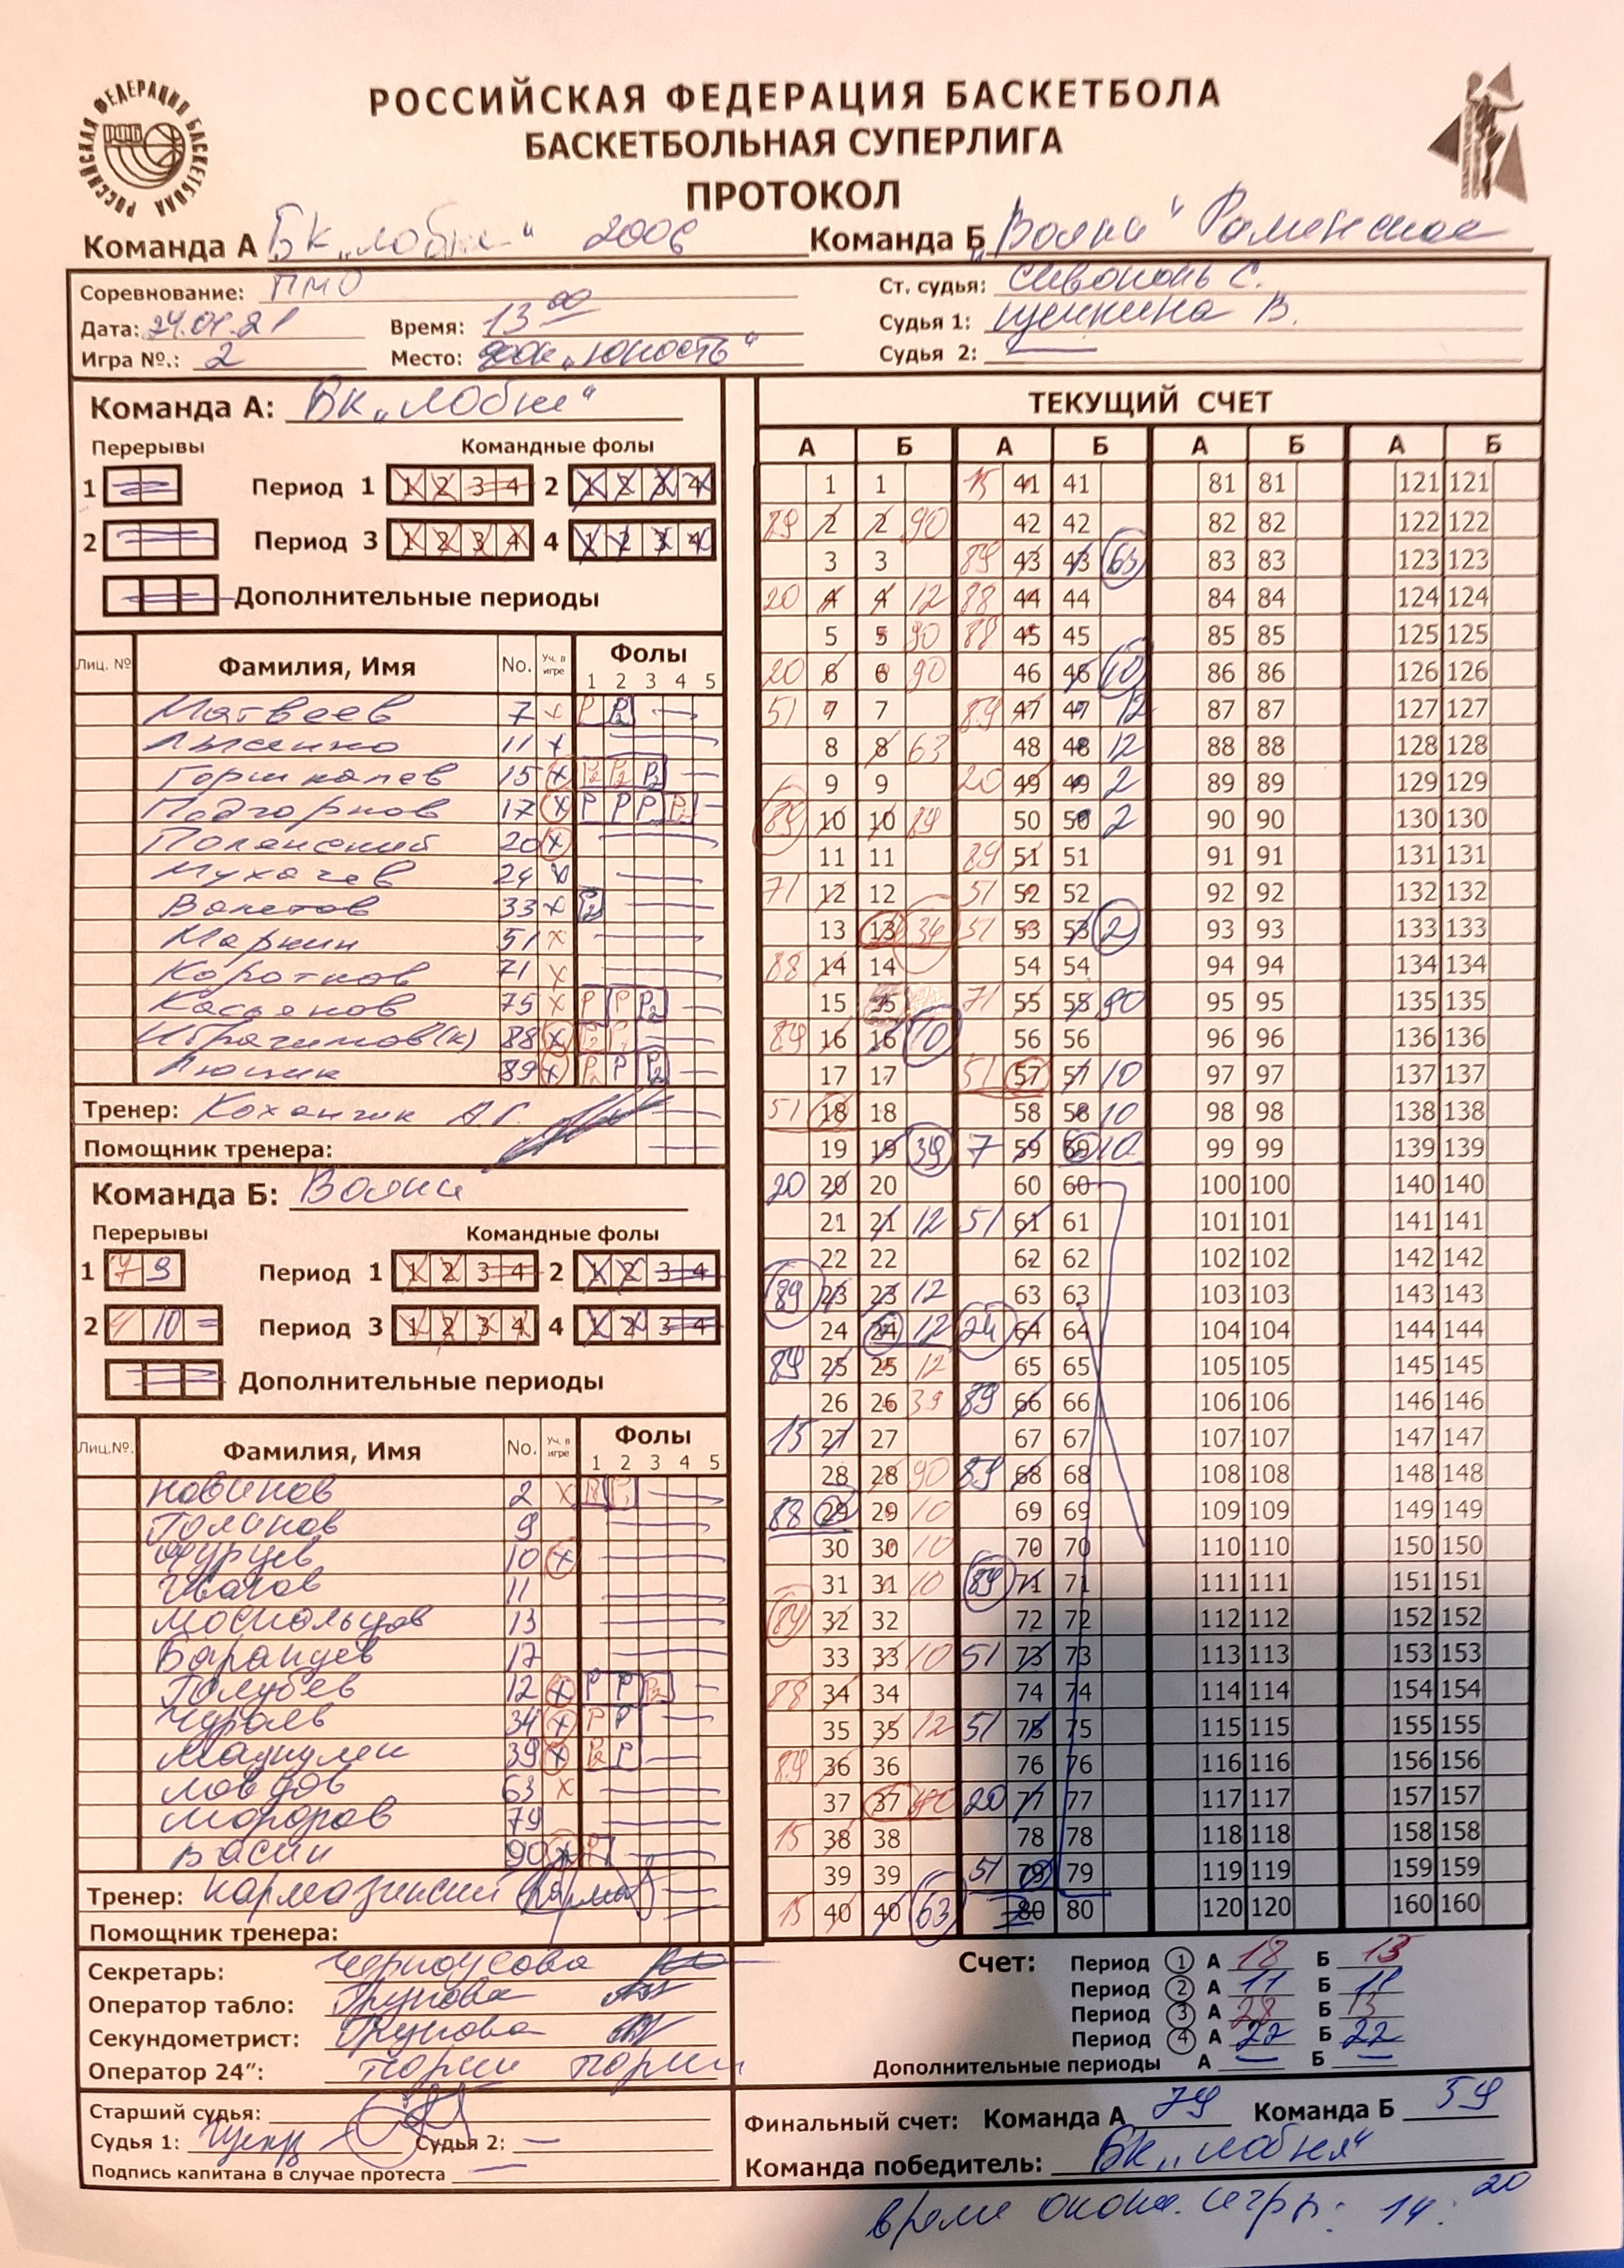 РОССИЙСКАЯ ФЕДЕРАЦИЯ БАСКЕТБОЛА
РОССИЙСКАЯ ФЕДЕРАЦИЯ БАСКЕТБОЛА
БАСКЕТБОЛЬНАЯ СУПЕРЛИГА
ПРОТОКОЛ
Команда А БК „Лобня" 2006 Команда Б „Волки" Раменское
Соревнование: ПМО Ст. судья: С.
Дата: 24.01.21 Время: 13 00 Судья 1: Щепкина В.
Игра №.: 2 Место: „Юность" Судья 2: —
Команда А: БК „Лобня"
Перерывы Командные фолы
1 Период 1 1 2 3 4 2 1 2 3 4
2 Период 3 1 2 3 4 4 1 2 3 4
Дополнительные периоды
Лиц. № Фамилия, Имя No. Уч. в игре Фолы 1 2 3 4 5
Матвеев 7 x P P2
Лысенко 11 x
15 x P2 P2 P2
Подгорнов 17 x P P P P2
Полянский 20 x
Мухачев 24 x
33 x P2
Маркин 51 x
Коротков 71 x
Касьянов 75 x P P P2
Ибрагимов (к) 88 x
Люцик 89 x P2 P P2
Тренер: А.Г.
Помощник тренера:
Команда Б: Волки
Перерывы Командные фолы
1 7 9 Период 1 1 2 3 4 2 1 2 3 4
2 4 10 = Период 3 1 2 3 4 4 1 2 3 4
Дополнительные периоды
Лиц.№. Фамилия, Имя No. Уч. в игре Фолы 1 2 3 4 5
Новиков 2 x
Голиков 9
Фурцев 10 x
Иванов 11
13
Баранцев 17
Голубев 12 x P P P2
Чуроль 34 x P P
39 x P2 P
63 x
79
Васин 90 x P
Тренер:
Помощник тренера:
Секретарь: Черноусова
Оператор табло: Трунова
Секундометрист: Трунова
Оператор 24": Ларин
Старший судья:
Судья 1: Судья 2: —
Подпись капитана в случае протеста
ТЕКУЩИЙ СЧЕТ
А Б А Б А Б А Б
1 1 15 41 41 81 81 121 121
89 2 2 90 42 42 82 82 122 122
3 3 89 43 43 63 83 83 123 123
20 4 4 12 88 44 44 84 84 124 124
5 5 90 88 45 45 85 85 125 125
20 6 6 90 46 46 10 86 86 126 126
51 7 7 89 47 47 12 87 87 127 127
8 8 63 48 48 12 88 88 128 128
9 9 20 49 49 2 89 89 129 129
89 10 10 50 50 2 90 90 130 130
11 11 89 51 51 91 91 131 131
71 12 12 51 52 52 92 92 132 132
13 13 34 51 53 53 2 93 93 133 133
88 14 14 54 54 94 94 134 134
15 15 71 55 55 90 95 95 135 135
89 16 16 10 56 56 96 96 136 136
17 17 51 57 57 10 97 97 137 137
51 18 18 58 58 10 98 98 138 138
19 19 39 7 59 59 10 99 99 139 139
20 20 20 60 60 100 100 140 140
21 21 12 51 61 61 101 101 141 141
22 22 62 62 102 102 142 142
89 23 23 12 63 63 103 103 143 143
24 24 12 24 64 64 104 104 144 144
89 25 25 12 65 65 105 105 145 145
26 26 39 89 66 66 106 106 146 146
15 27 27 67 67 107 107 147 147
28 28 90 89 68 68 108 108 148 148
88 29 29 10 69 69 109 109 149 149
30 30 10 70 70 110 110 150 150
31 31 10 89 71 71 111 111 151 151
89 32 32 72 72 112 112 152 152
33 33 10 51 73 73 113 113 153 153
88 34 34 74 74 114 114 154 154
35 35 12 51 75 75 115 115 155 155
89 36 36 76 76 116 116 156 156
37 37 20 77 77 117 117 157 157
15 38 38 78 78 118 118 158 158
39 39 51 79 79 119 119 159 159
15 40 40 63 80 80 120 120 160 160
Счет: Период 1 А 18 Б 13
Период 2 А 11 Б 11
Период 3 А 28 Б 13
Период 4 А 22 Б 22
Дополнительные периоды А — Б —
Финальный счет: Команда А 79 Команда Б 59
Команда победитель: БК „Лобня"
Время оконч. игры: 14.20